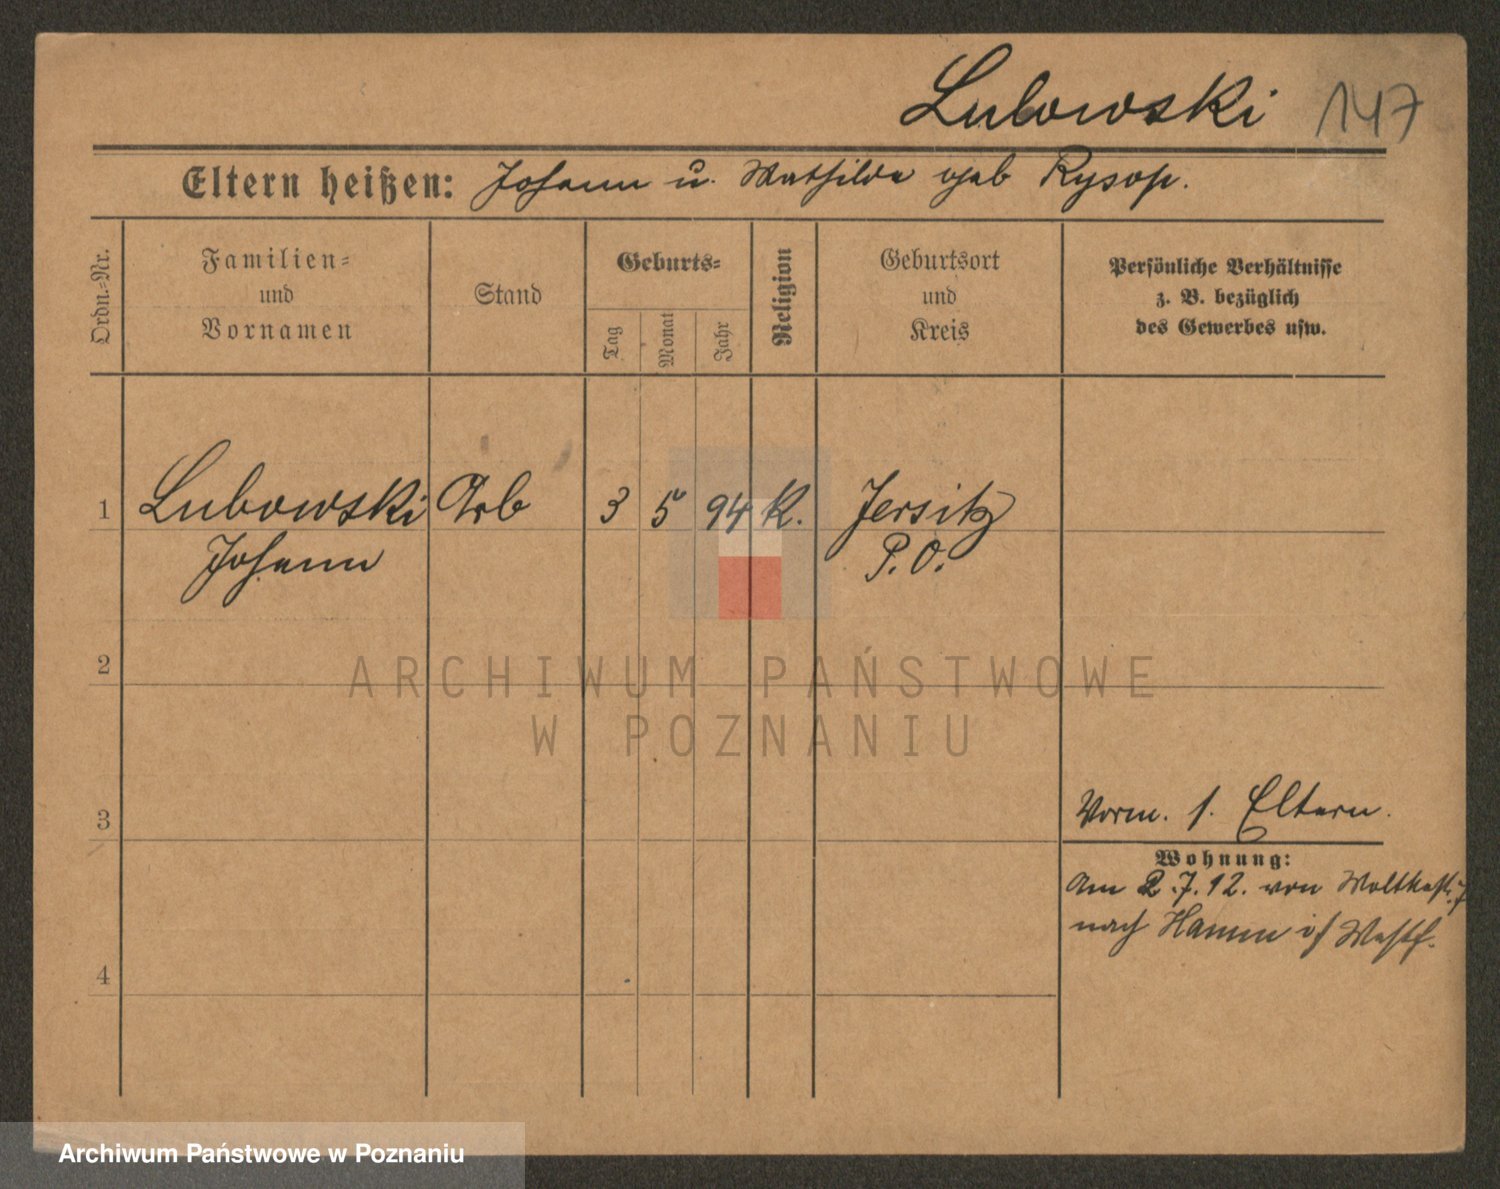 Lubowski 147
Eltern heißen: Johann u. Mathilde geb Rysop.
Ordn.-Nr.
Familien-
und
Vornamen
Stand
Geburts-
Tag
Monat
Jahr
Religion
Geburtsort
und
Kreis
Persönliche Verhältnisse
z. B. bezüglich
des Gewerbes usw.
1 Lubowski Arb 3 5 94 K. Jersitz
Johann P. O.
2
ARCHIWUM PAŃSTWOWE
W POZNANIU
3 Vorm. s. Eltern.
Wohnung:
Am 2.7.12. von Moltkestr. 7
nach Hamm i/ Westf.
4
Archiwum Państwowe w Poznaniu